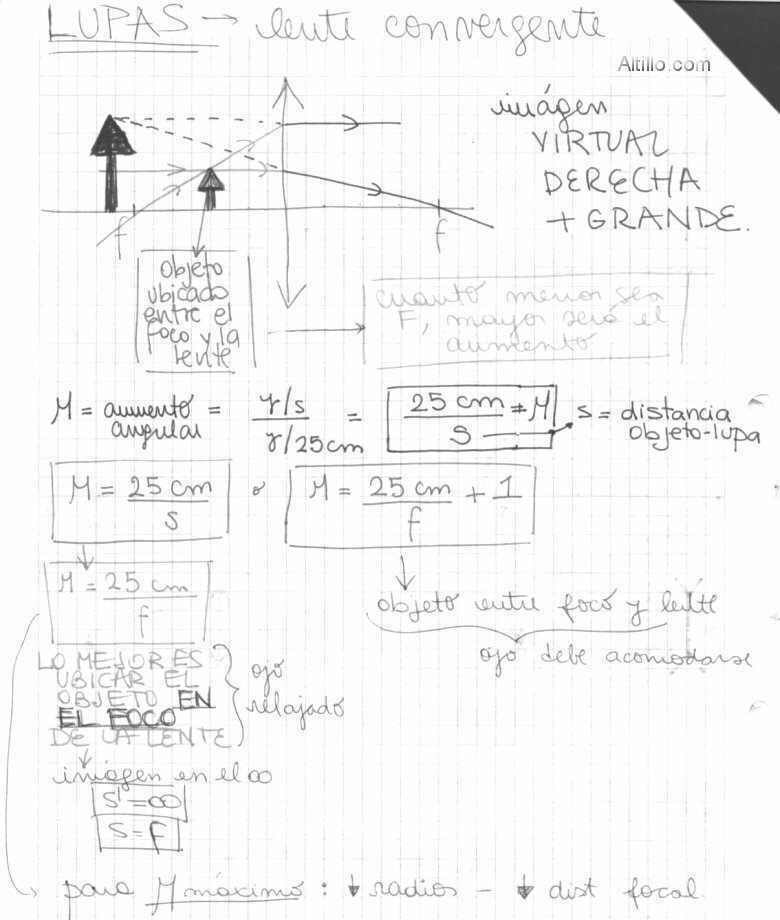 LUPAS → lente convergente
Altillo.com
imágen
VIRTUAL
DERECHA
+ GRANDE.
f
f
objeto
ubicado
entre el
foco y la
lente
cuanto menor sea
F, mayor será el
aumento
M = aumento angular = γ/s / γ/25cm = 25 cm / s = M
s = distancia
objeto-lupa
M = 25 cm / s o M = 25 cm / f + 1
M = 25 cm / f
objeto entre foco y lente
ojo debe acomodarse
LO MEJOR ES
UBICAR EL
OBJETO EN
EL FOCO
DE LA LENTE
ojo
relajado
imagen en el ∞
s' = ∞
s = f
para M máximo : ↓ radios - ↓ dist focal